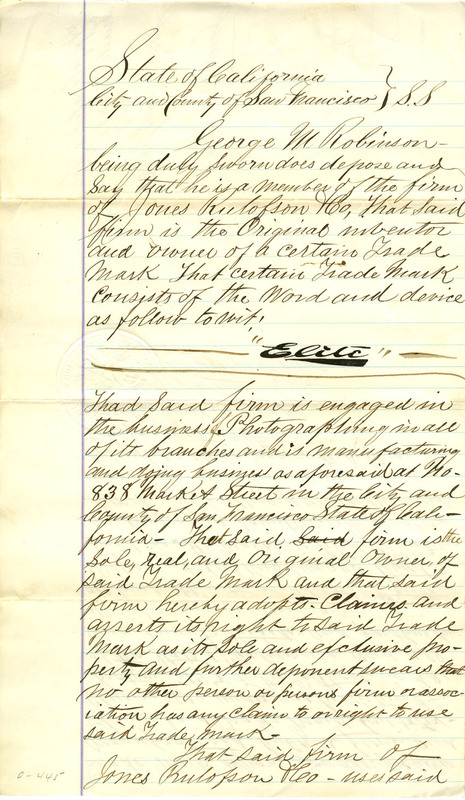 State of California
City and County of San Francisco } S.S
George M Robinson -
being duly sworn does depose and
say that he is a member of the firm
of Jones Rulofson & Co, That said
firm is the Original inventor
and owner of a certain Trade
Mark That certain Trade Mark
consists of the Word and device
as follow to wit,
"Elite"
That said firm is engaged in
the business of Photographing in all
of its branches and is manufacturing
and doing business as aforesaid at No
838 Market Street in the City and
County of San Francisco State of Cali-
fornia - That said Said firm is the
sole, real, and original owner of
said Trade Mark and that said
firm hereby adopts - Claims and
asserts its right to said Trade
Mark as its sole and exclusive pro-
perty and further deponent swears that
no other person or persons firm or assoc-
iation has any claim to or right to use
said Trade Mark -
That said firm of
Jones Rulofson & Co - uses said
0-445